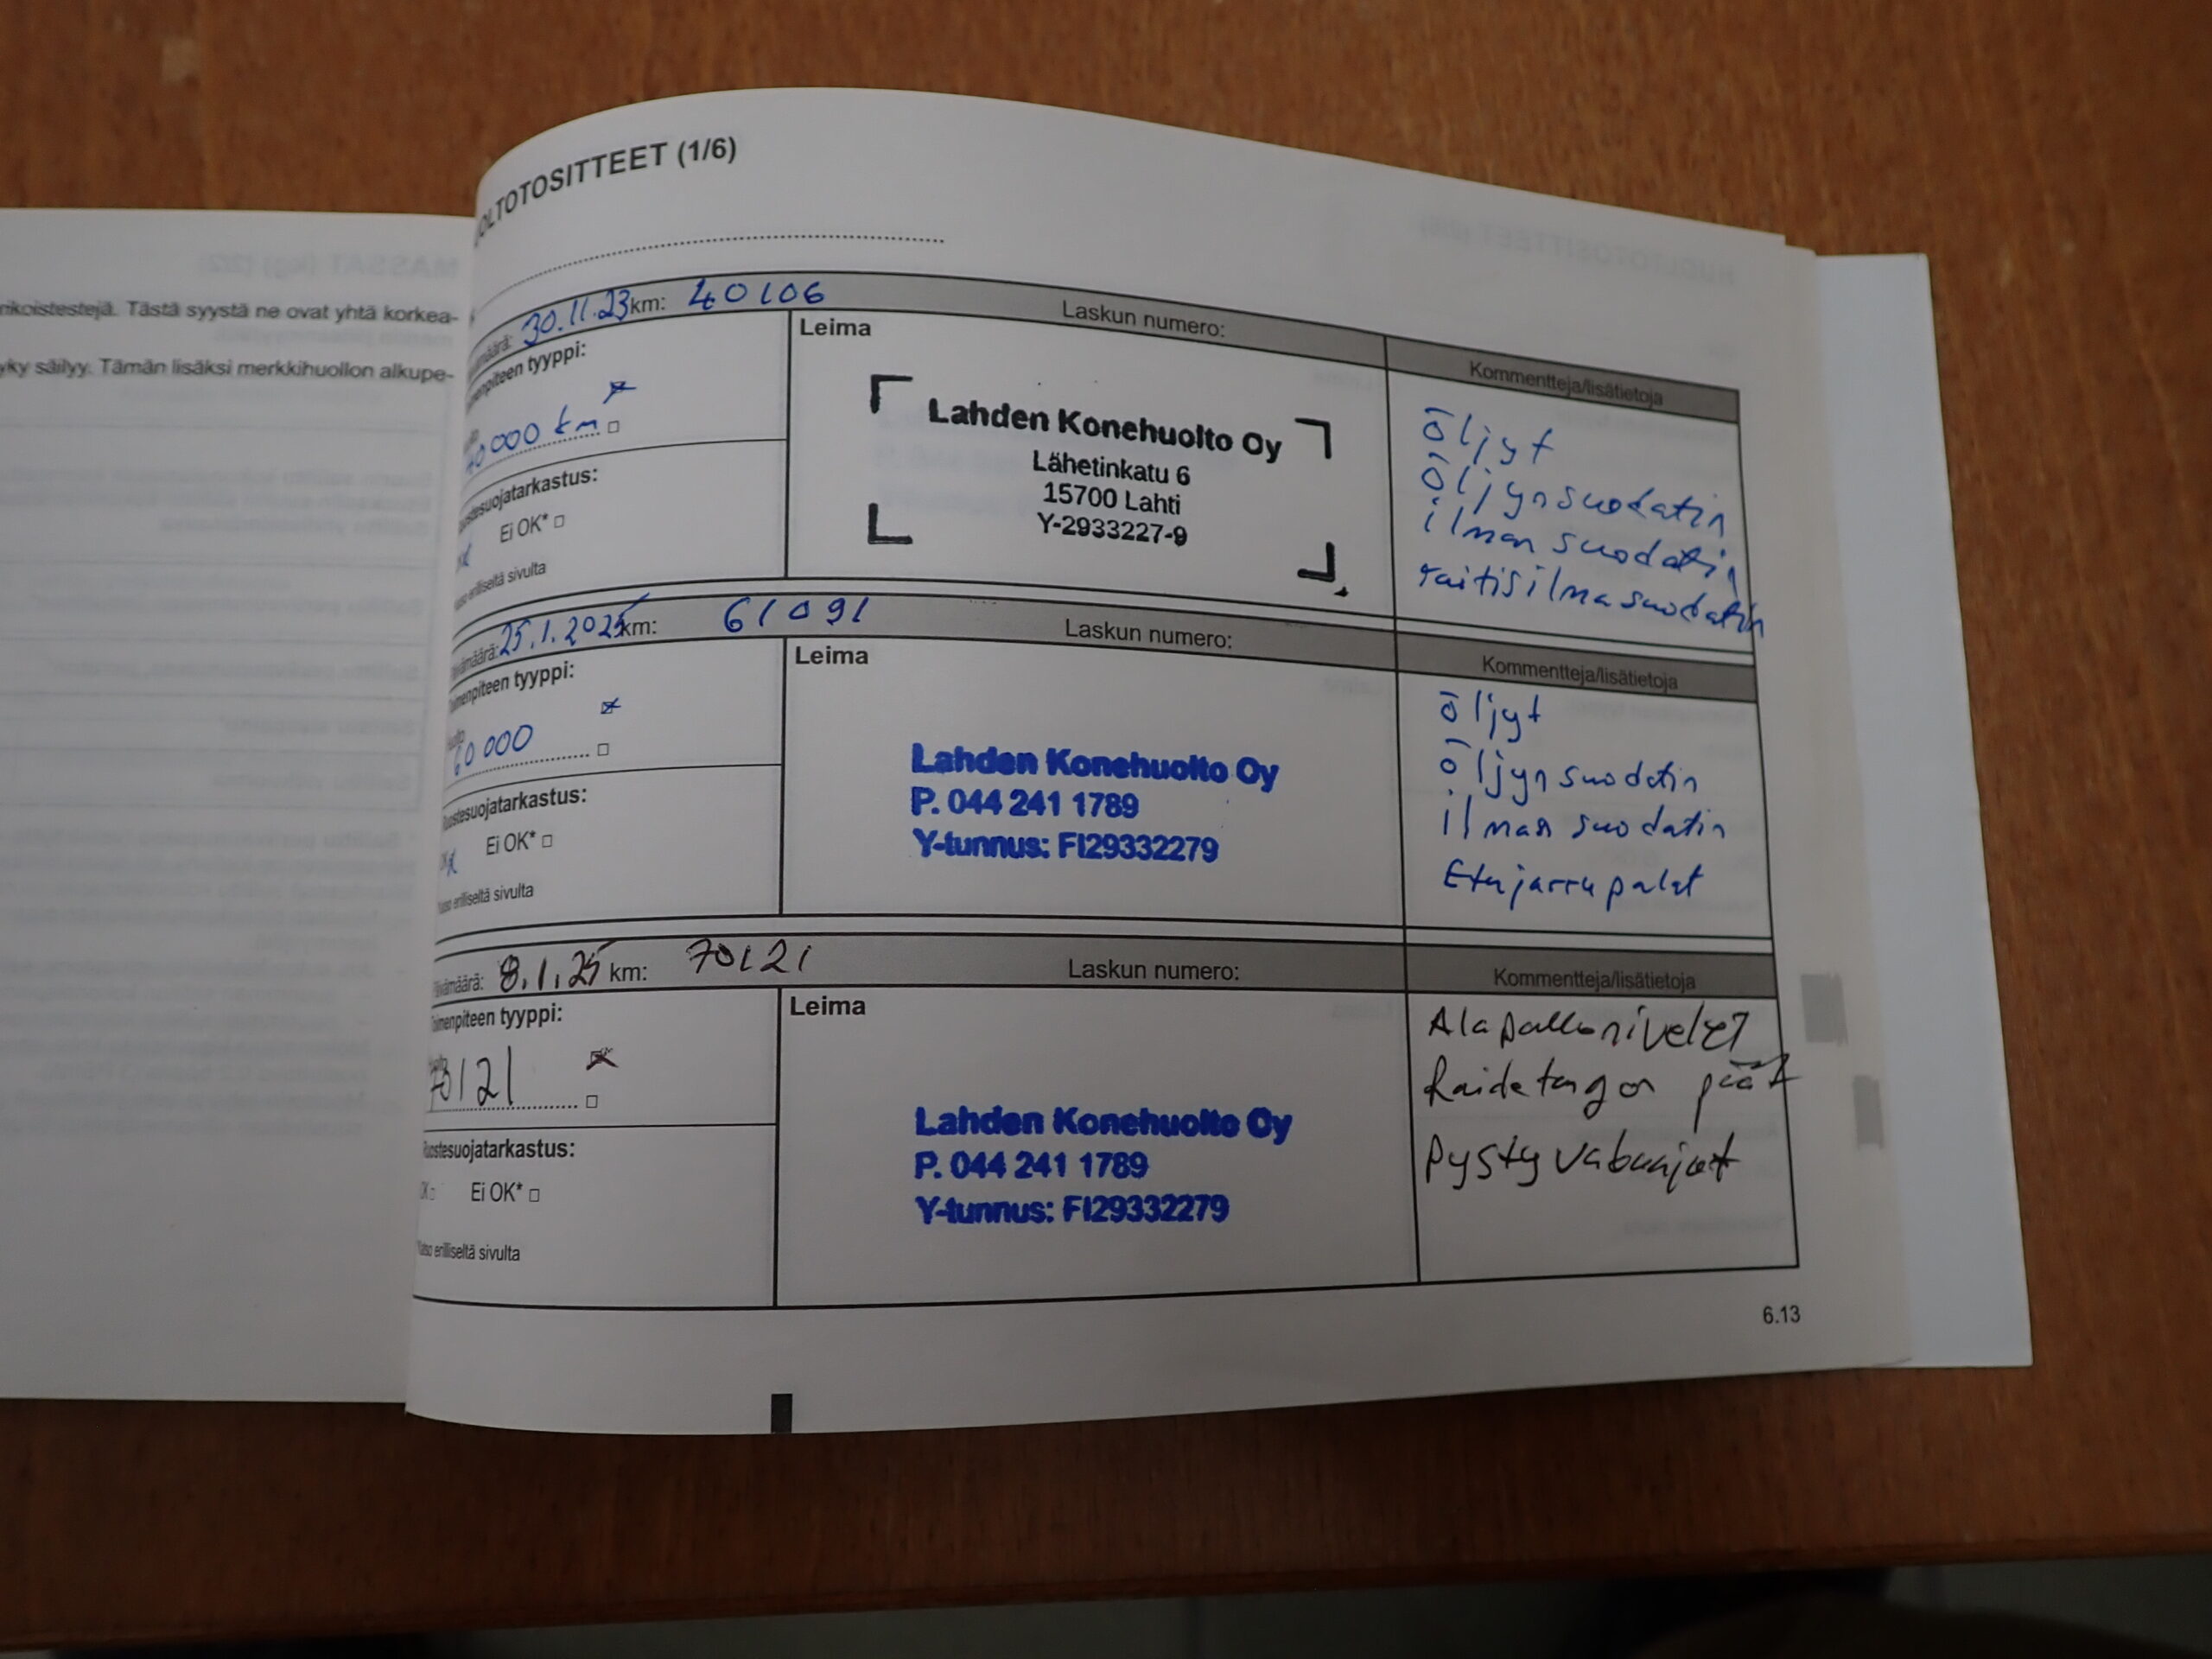 rikoistestejä. Tästä syystä ne ovat yhtä korkea-
yky säilyy. Tämän lisäksi merkkihuollon alkupe-
OLTOTOSITTEET (1/6)
30.11.23 km: 40106 Laskun numero:
Kommentteja/lisätietoja
Leima
enpiteen tyyppi:
40000 km
uostesuojatarkastus:
Ei OK*
erilliseltä sivulta
Lahden Konehuolto Oy
Lähetinkatu 6
15700 Lahti
Y-2933227-9
öljyt
öljynsuodatin
ilman suodatin
raitisilmasuodatin
25.1.2025 km: 61091 Laskun numero:
Kommentteja/lisätietoja
Leima
imenpiteen tyyppi:
60000
uostesuojatarkastus:
Ei OK*
erilliseltä sivulta
Lahden Konehuolto Oy
P. 044 241 1789
Y-tunnus: FI29332279
öljyt
öljynsuodatin
ilman suodatin
Etujarrupalat
Päivämäärä: 8.1.25 km: 70121 Laskun numero:
Kommentteja/lisätietoja
Leima
oimenpiteen tyyppi:
70121
uostesuojatarkastus:
OK Ei OK*
erilliseltä sivulta
Lahden Konehuolto Oy
P. 044 241 1789
Y-tunnus: FI29332279
Alapallonivelet
Raidetangon päät
Pystyvakaajat
6.13